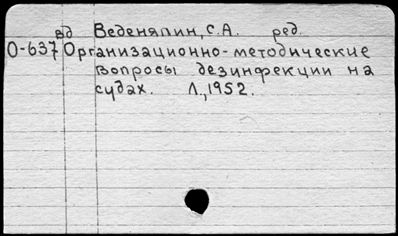 вд Веденяпин, С.А. ред.
О-637 Организационно-методические
вопросы дезинфекции на
судах. Л., 1952.